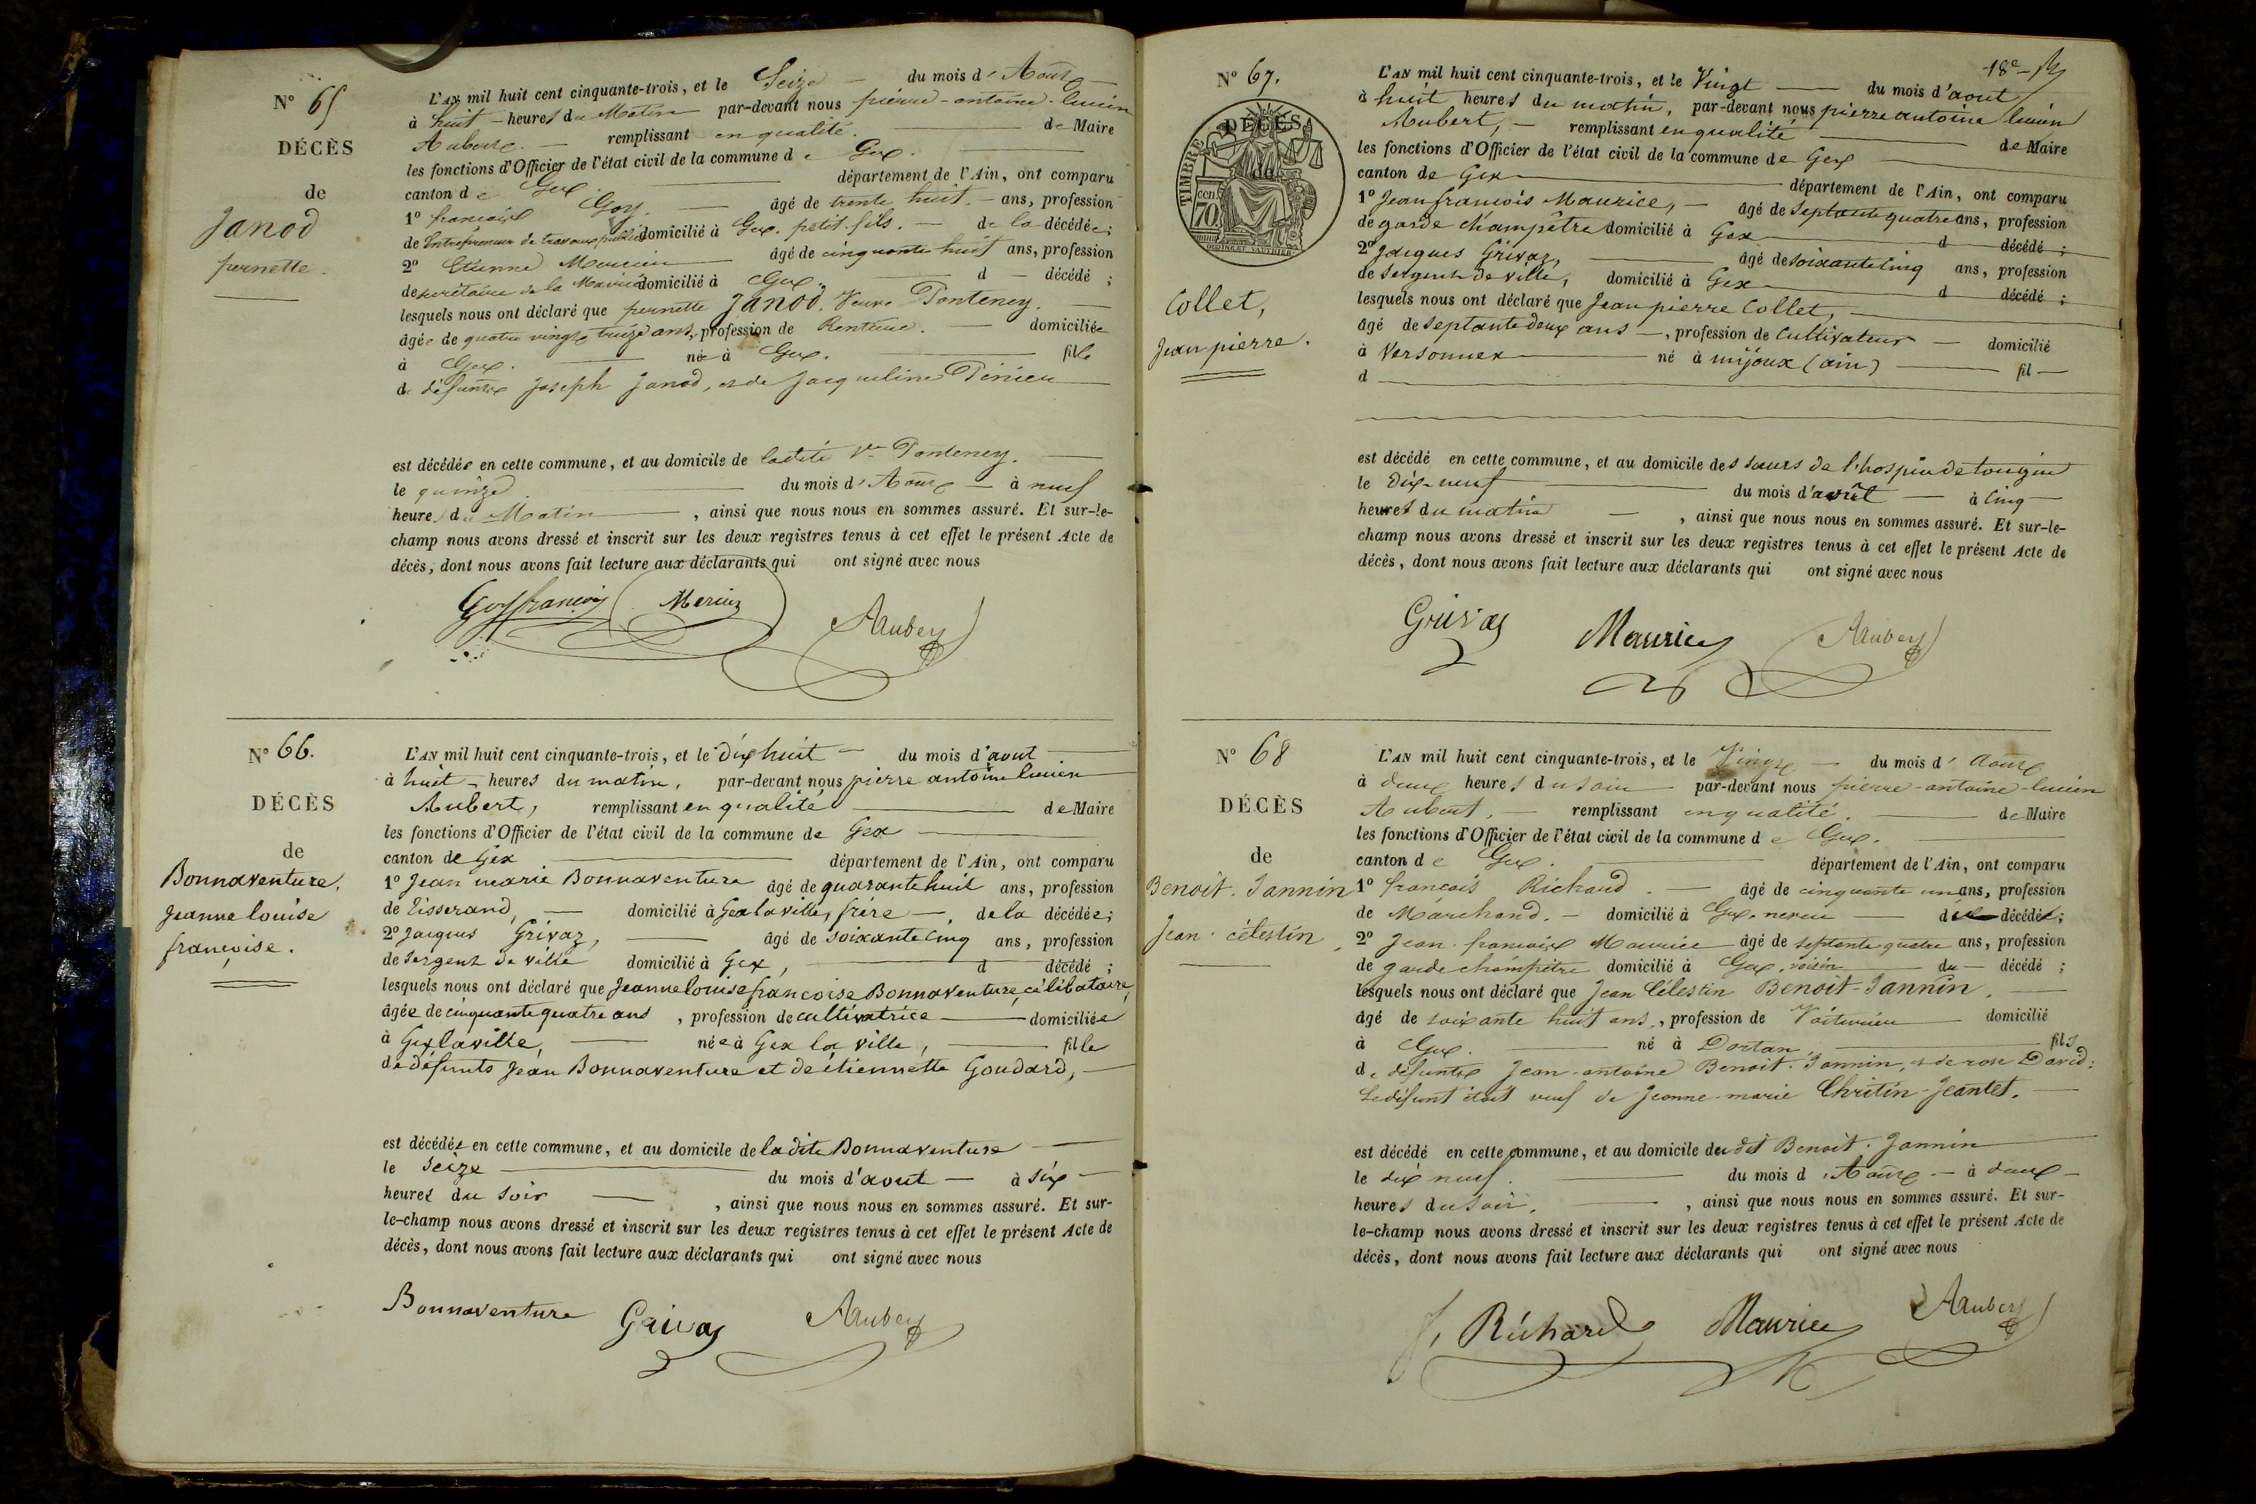 N° 65
DÉCÈS
de
Janod
pernette.
L'AN mil huit cent cinquante-trois, et le Seize — du mois d'Aout
à huit — heures du Matin par-devant nous pierre-antoine-lucien
Aubert. — remplissant en qualité. — de Maire
les fonctions d'Officier de l'état civil de la commune de Gex.
canton de Gex. — département de l'Ain, ont comparu
1° françois Goy. — âgé de trente huit. — ans, profession
de Entrepreneur de travaux publics domicilié à Gex. petit-fils. — de la décédée;
2° Etienne Mercier — âgé de cinquante huit ans, profession
de secrétaire de la Mairie domicilié à Gex. — d — décédé ;
lesquels nous ont déclaré que pernette Janod. Veuve Ponteney. —
âgée de quatre vingt treize ans, profession de Rentière. — domiciliée
à Gex. — née à Gex. — fille
de défunts Joseph Janod, et de Jacqueline
est décédée en cette commune, et au domicile de ladite Ve Ponteney. —
le quinze — du mois d'Aout — à neuf
heures du Matin —, ainsi que nous nous en sommes assuré. Et sur-le-
champ nous avons dressé et inscrit sur les deux registres tenus à cet effet le présent Acte de
décès, dont nous avons fait lecture aux déclarants qui ont signé avec nous
Goy françois Mercier Aubert
N° 66.
DÉCÈS
de
Bonnaventure,
Jeanne louise
françoise.
L'AN mil huit cent cinquante-trois, et le dix huit — du mois d'aout —
à huit — heures du matin, par-devant nous pierre antoine lucien
Aubert, remplissant en qualité — de Maire
les fonctions d'Officier de l'état civil de la commune de Gex —
canton de Gex — département de l'Ain, ont comparu
1° Jean marie Bonnaventure âgé de quarante huit ans, profession
de Tisserand, — domicilié à Gex la ville, frère —, de la décédée;
2° Jacques Grivaz, — âgé de soixante cinq ans, profession
de sergent de ville domicilié à Gex, — d décédé ;
lesquels nous ont déclaré que Jeanne louise françoise Bonnaventure, célibataire,
âgée de cinquante quatre ans, profession de cultivatrice — domiciliée
à Gex la ville, — née à Gex la ville, — fille
de défunts Jean Bonnaventure et de étiennette Goudard, —
est décédée en cette commune, et au domicile de la dite Bonnaventure —
le seize — du mois d'aout — à six —
heures du soir —, ainsi que nous nous en sommes assuré. Et sur-
le-champ nous avons dressé et inscrit sur les deux registres tenus à cet effet le présent Acte de
décès, dont nous avons fait lecture aux déclarants qui ont signé avec nous
Bonnaventure Grivaz Aubert
18e
N° 67.
DÉCÈS
de
TIMBRE
cen
70
Collet,
Jean pierre.
L'AN mil huit cent cinquante-trois, et le Vingt — du mois d'aout
à huit heures du matin, par-devant nous pierre antoine lucien
Aubert, — remplissant en qualité — de Maire
les fonctions d'Officier de l'état civil de la commune de Gex —
canton de Gex — département de l'Ain, ont comparu
1° Jean françois Maurice, — âgé de septante quatre ans, profession
de garde champêtre domicilié à Gex — d décédé ;
2° Jacques Grivaz, — âgé de soixante cinq ans, profession
de sergent de ville, domicilié à Gex — d décédé ;
lesquels nous ont déclaré que Jean pierre Collet, —
âgé de septante deux ans —, profession de cultivateur — domicilié
à Versonnex — né à mijoux (ain) — fil —
d —
est décédé en cette commune, et au domicile des sœurs de l'hospice de tougin
le dix-neuf — du mois d'août — à cinq —
heures du matin —, ainsi que nous nous en sommes assuré. Et sur-le-
champ nous avons dressé et inscrit sur les deux registres tenus à cet effet le présent Acte de
décès, dont nous avons fait lecture aux déclarants qui ont signé avec nous
Grivaz Maurice Aubert
N° 68
DÉCÈS
de
Benoit-Jannin
Jean-célestin
L'AN mil huit cent cinquante-trois, et le Vingt — du mois d'Aout
à deux heures du soir par-devant nous pierre-antoine-lucien
Aubert, — remplissant en qualité. — de Maire
les fonctions d'Officier de l'état civil de la commune de Gex.
canton de Gex. — département de l'Ain, ont comparu
1° françois Richard. — âgé de cinquante un ans, profession
de Marchand. — domicilié à Gex, neveu — du décédé;
2° Jean-françois Maurice âgé de septante quatre ans, profession
de garde champêtre domicilié à Gex, voisin du — décédé ;
lesquels nous ont déclaré que Jean Célestin Benoit-Jannin. —
âgé de soixante huit ans, profession de Voiturier — domicilié
à Gex. — né à Dortan — fils
de défunts Jean-antoine Benoit-Jannin, et de rose David:
Le défunt était veuf de Jeanne-marie Chritin-Jeantet. —
est décédé en cette commune, et au domicile dudit Benoit-Jannin
le dix neuf. — du mois d'Aout — à deux —
heures du soir. —, ainsi que nous nous en sommes assuré. Et sur-
le-champ nous avons dressé et inscrit sur les deux registres tenus à cet effet le présent Acte de
décès, dont nous avons fait lecture aux déclarants qui ont signé avec nous
f, Richard Maurice Aubert